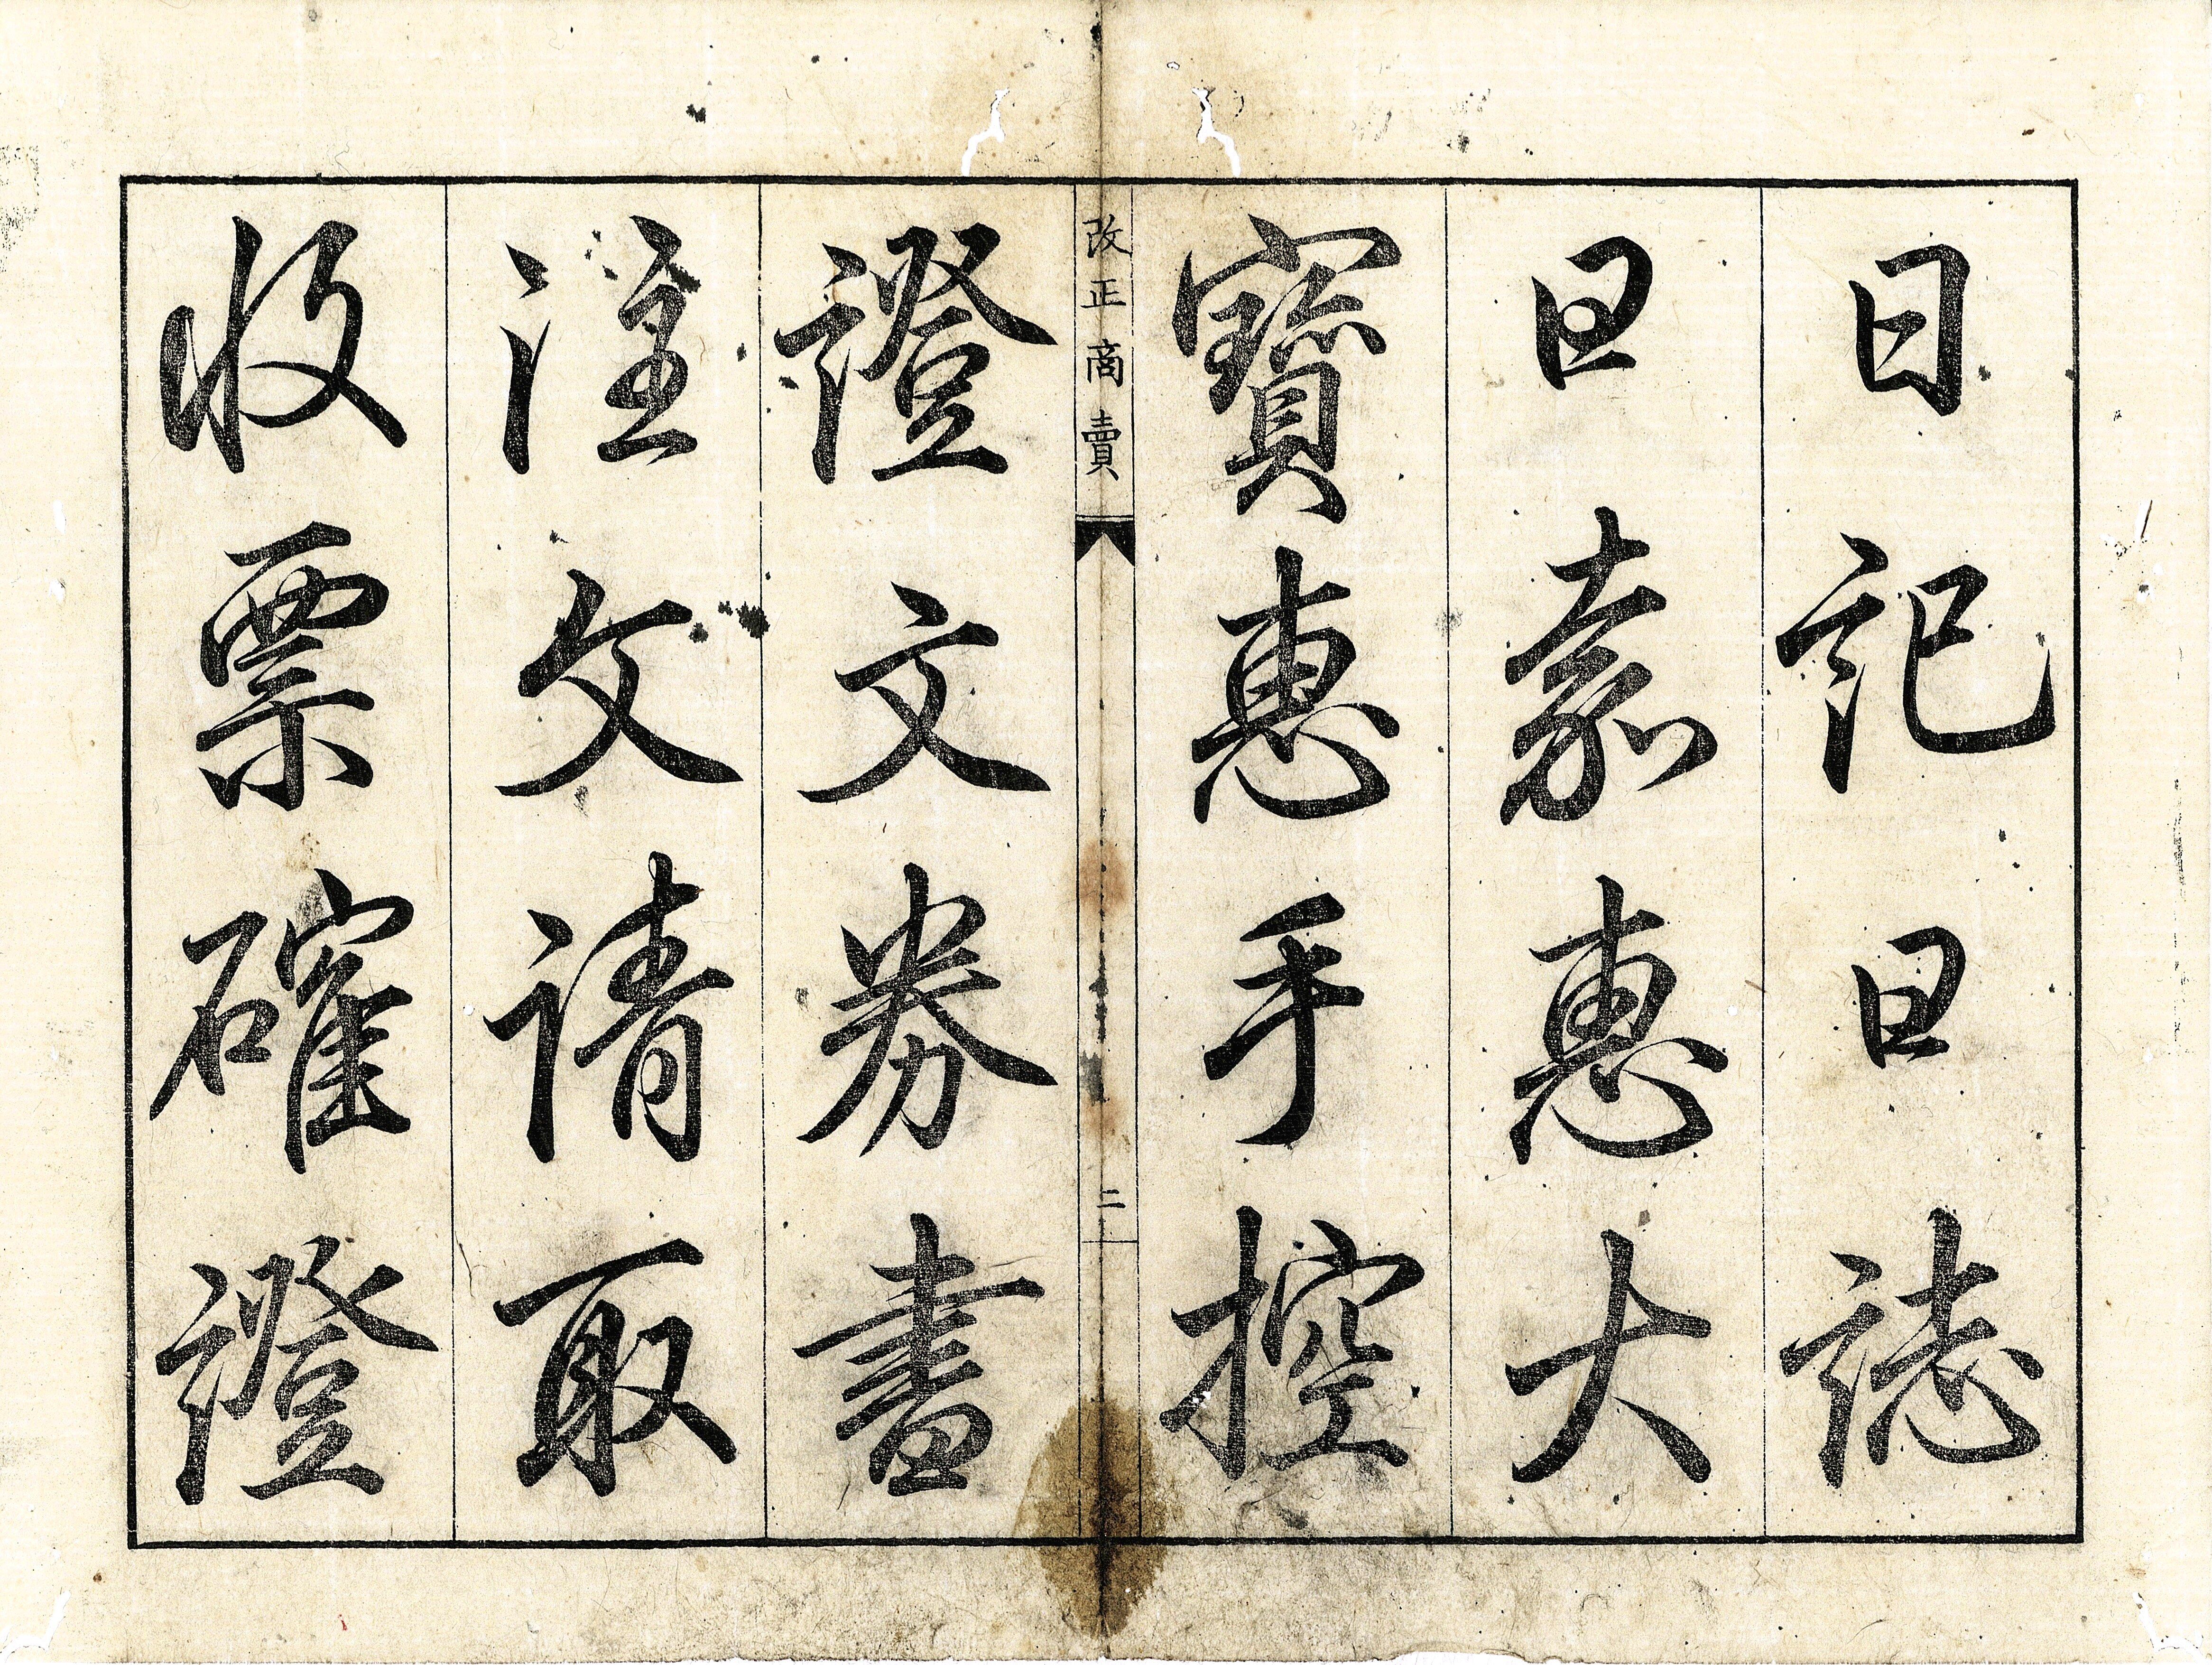 日記日誌
日嘉惠大
寶惠手控
改正商賣
二
證文券書
注文請取
收票確證